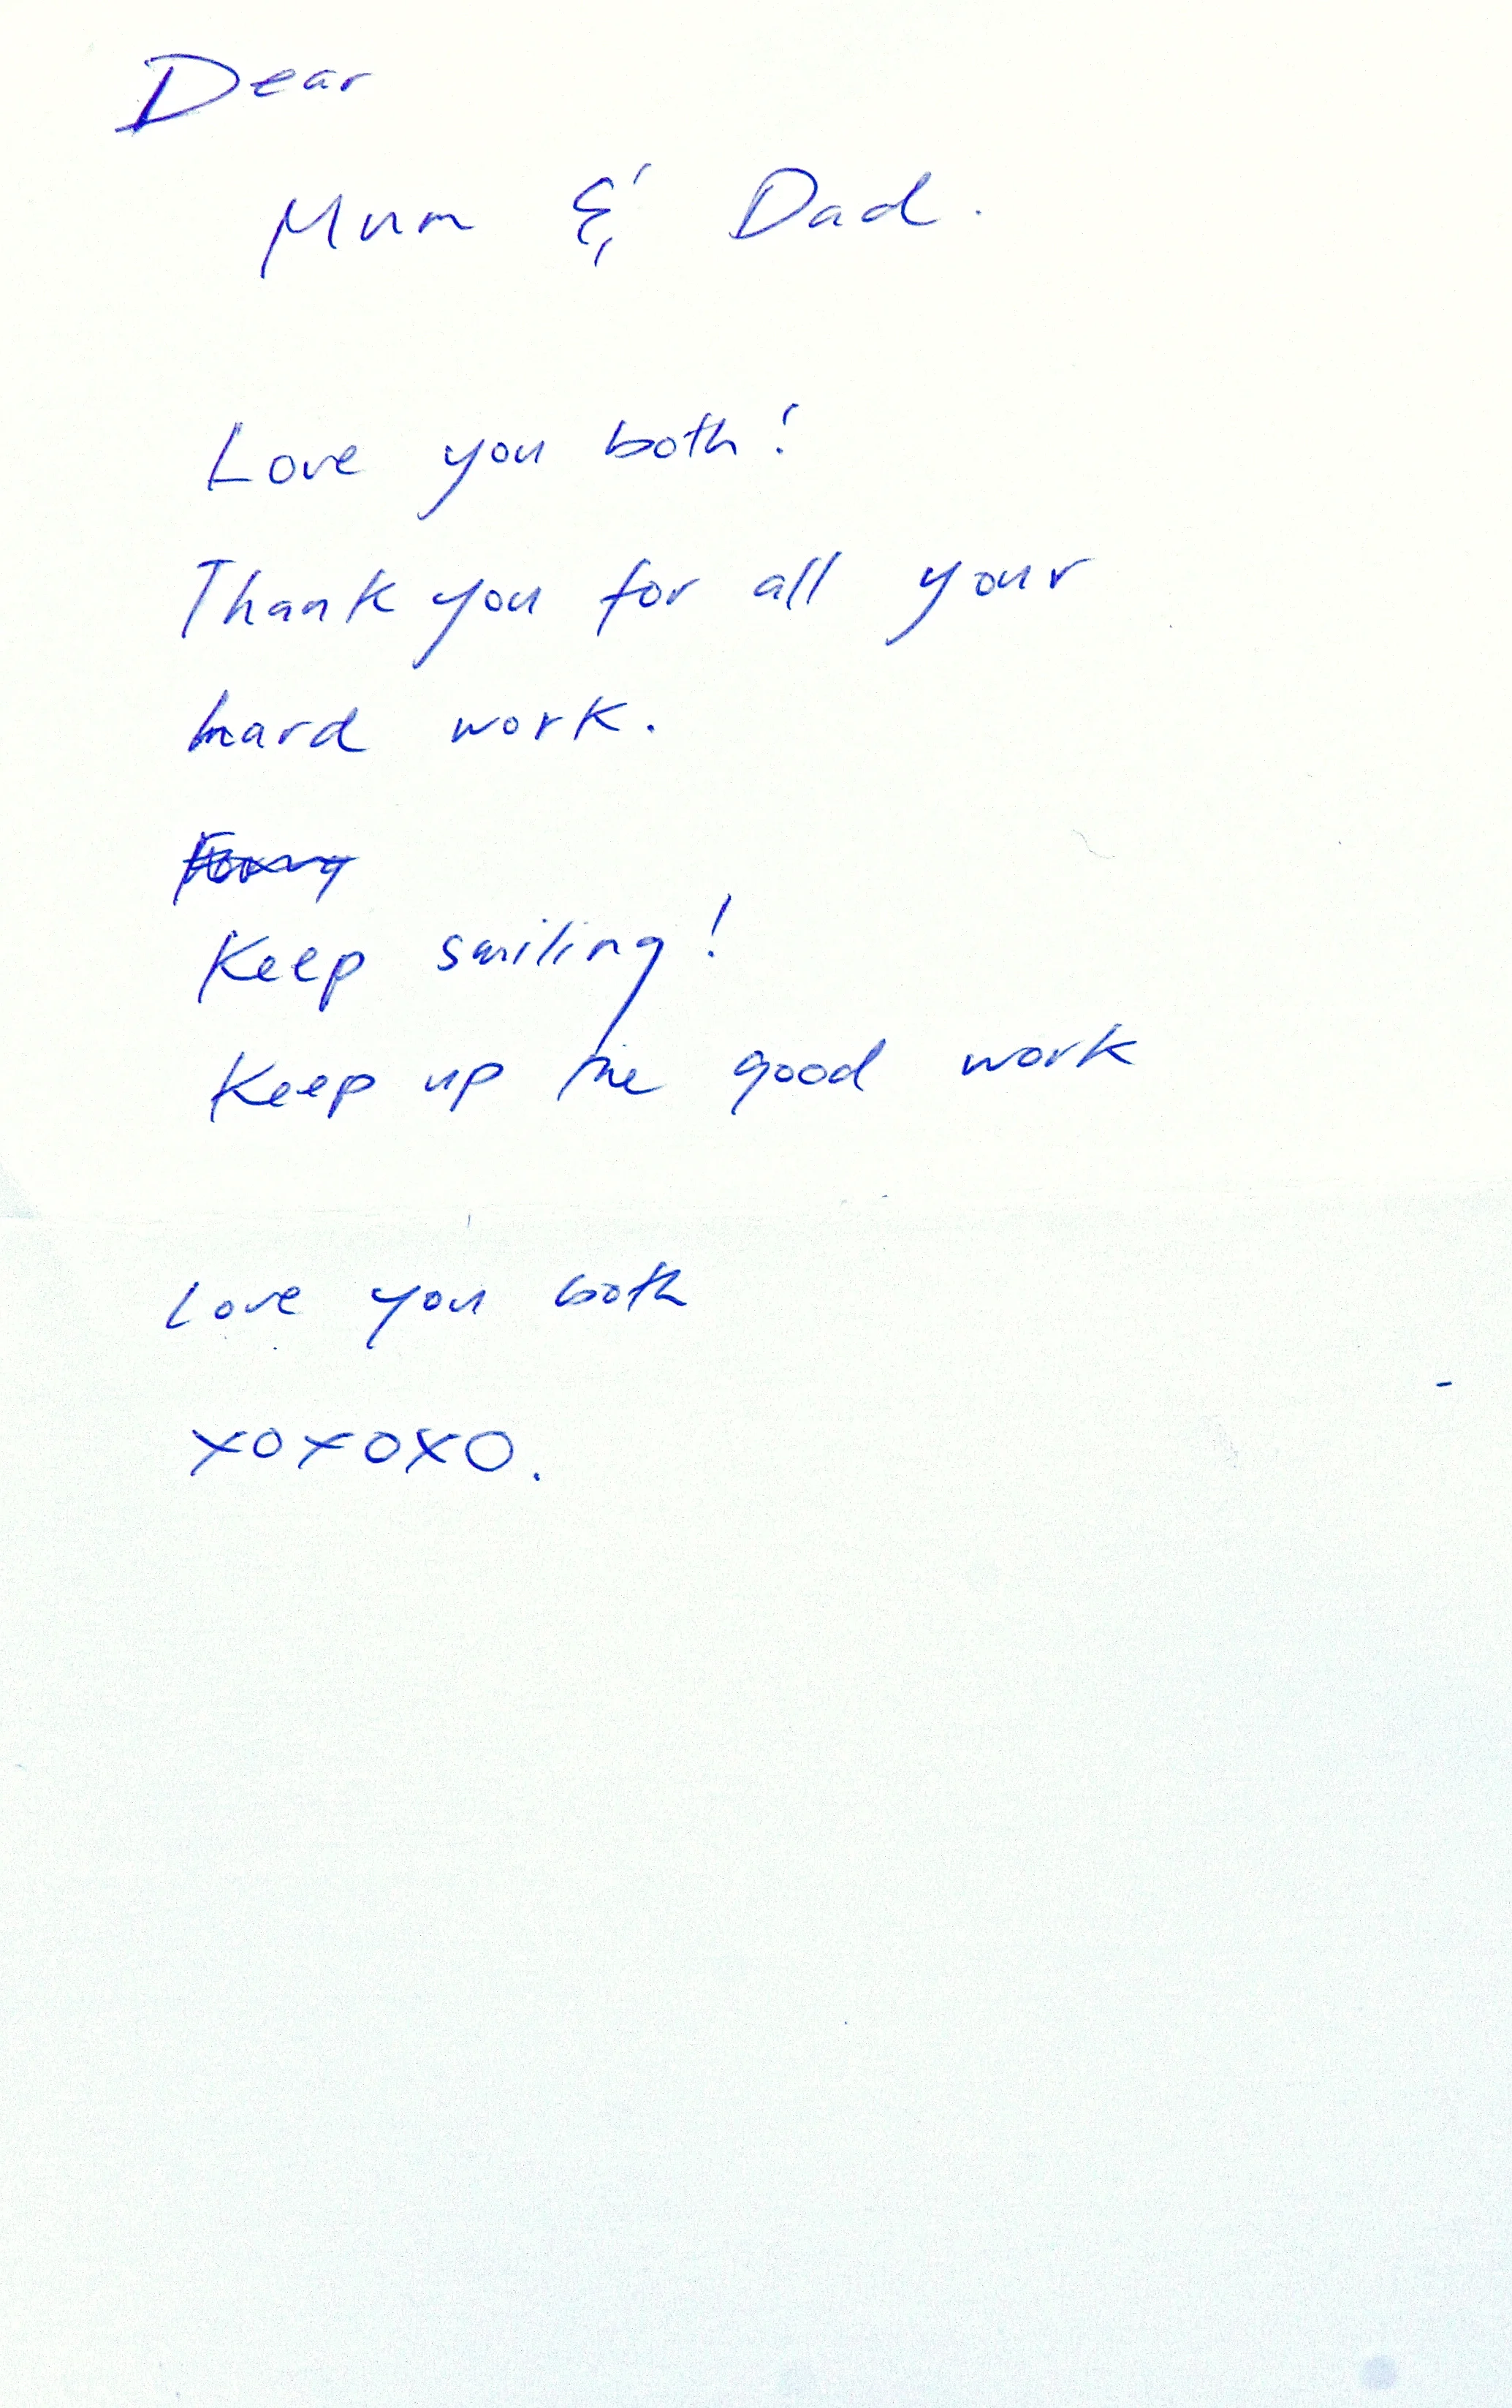 Dear
Mum & Dad.
Love you both!
Thank you for all your
hard work.
Keep smiling!
Keep up the good work
Love you both
xoxoxo.